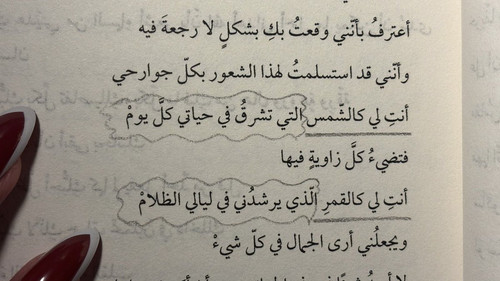 أعترفُ بأنّني وقعتُ بكِ بشكلٍ لا رجعةَ فيه
وأنّني قد استسلمتُ لهذا الشعور بكلّ جوارحي
أنتِ لي كالشّمس التي تشرقُ في حياتي كلَّ يومْ
فتضيءُ كلَّ زاويةٍ فيها
أنتِ لي كالقمرِ الّذي يرشدُني في ليالي الظلامْ
ويجعلُني أرى الجمال في كلّ شيءْ